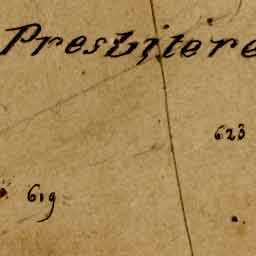 Presbitere
623
619